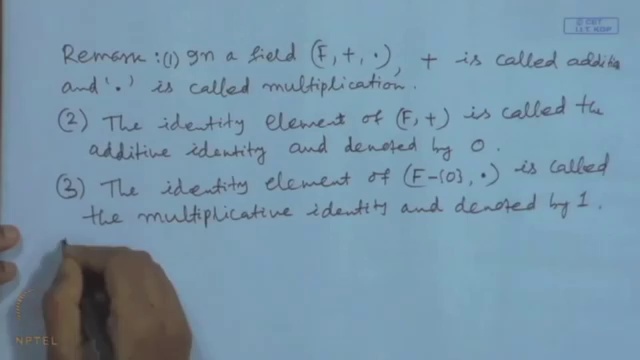 © CET
I.I.T. KGP
Remark :(1) In a field (F, +, ·), + is called additio
and '·' is called multiplication.
(2) The identity element of (F, +) is called the
additive identity and denoted by 0.
(3) The identity element of (F-{0}, ·) is called
the multiplicative identity and denoted by 1.
NPTEL